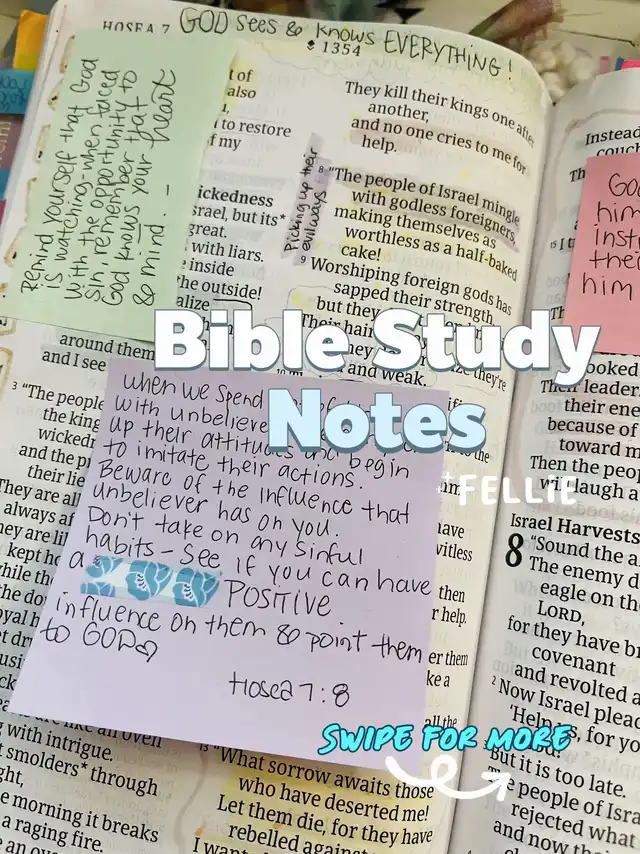 HOSEA 7
GOD sees & knows EVERYTHING!
1354
Remind yourself that God
is watching when faced
with the opportunity to
sin, remember that
God knows your heart
& mind. -
t of
also
to restore
f my
ickedness
srael, but its*
great.
with liars.
e inside
he outside!
alize
around them
and I see
They kill their kings one after
another,
and no one cries to me for
help.
Picking up their
evil ways
8 "The people of Israel mingle
with godless foreigners,
making themselves as
worthless as a half-baked
cake!
9 Worshiping foreign gods has
sapped their strength,
but they
Their hair
they're
and weak.
Bible Study
Notes
FELLIE
when we spend
with unbelievers
up their attitudes and begin
to imitate their actions.
Beware of the influence that
unbeliever has on you.
Don't take on any sinful
habits - see if you can have
a POSITIVE
influence on them & point them
to GOD
Hosea 7:8
3 "The people
the king
wickedn
and the p
their lie
They are all
always a
hey are li
kept h
while the
the do
to the
have
witless
then
r help.
er them
ke a
all the
like an oven
with intrigue.
smolders* through
ght,
e morning it breaks
a raging fire.
SWIPE FOR MORE
13 "What sorrow awaits those
who have deserted me!
Let them die, for they have
rebelled against
Instead
couch
Th
15 I t
God
him
inst
thei
him
looked
Their leader
their ene
because of
toward m
Then the peop
will laugh a
Israel Harvests
8 "Sound the a
The enemy o
eagle on the
LORD,
for they have br
covenant
and revolted a
2 Now Israel plead
'Help us, for yo
But it is too late.
The people of Isra
rejected what
and now the